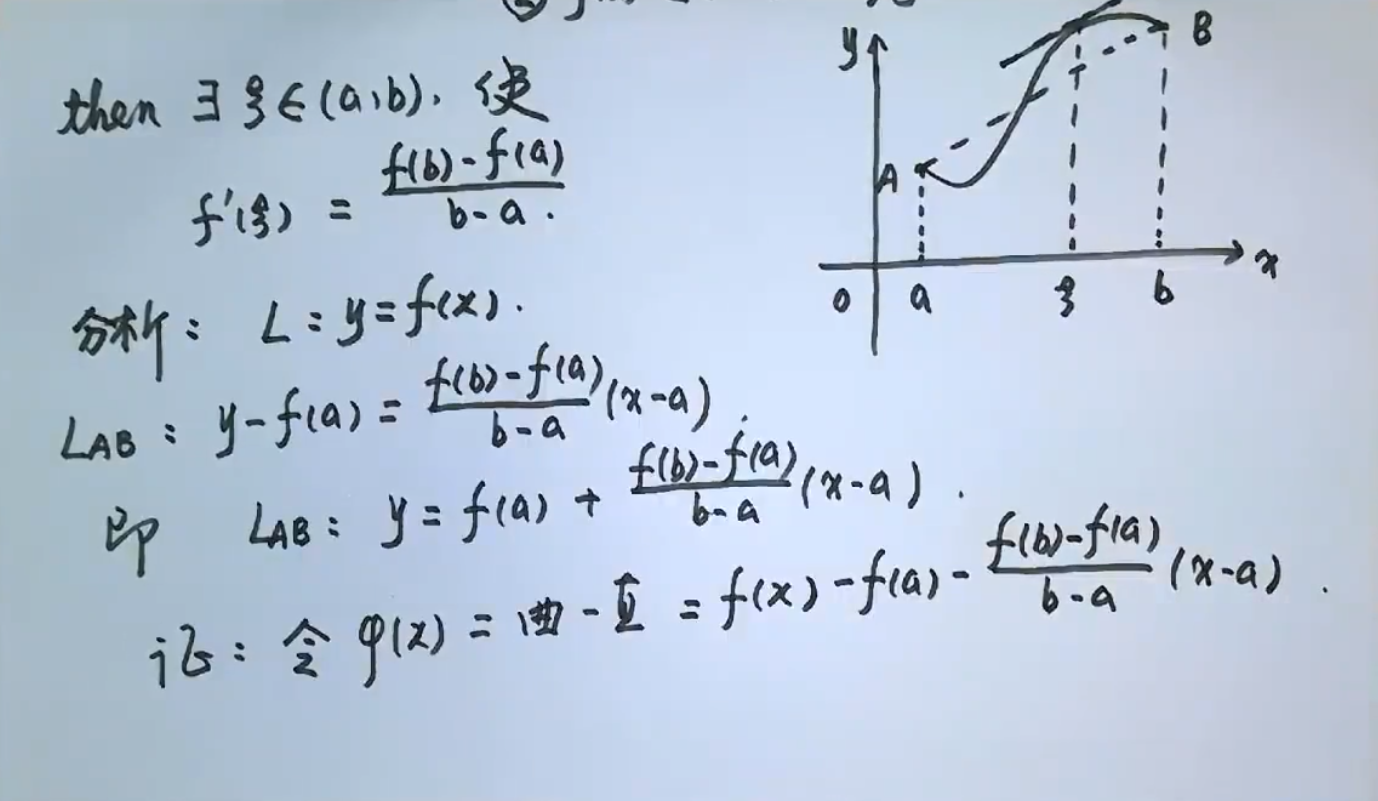 then ∃ ξ∈(a,b), 使
f'(ξ) = \frac{f(b)-f(a)}{b-a}.
分析: L: y=f(x).
L_{AB}: y-f(a) = \frac{f(b)-f(a)}{b-a}(x-a).
即 L_{AB}: y = f(a) + \frac{f(b)-f(a)}{b-a}(x-a).
证: 令 φ(x) = 曲-直 = f(x)-f(a)-\frac{f(b)-f(a)}{b-a}(x-a).
y
B
A
x
0 a ξ b